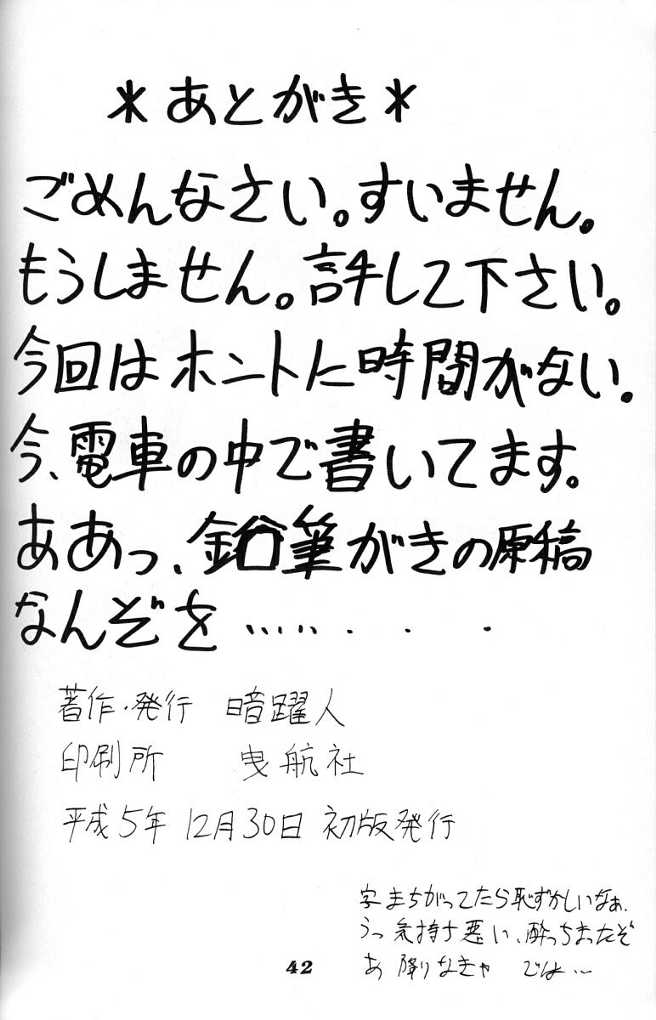 ＊あとがき＊
ごめんなさい。すいません。
もうしません。許して下さい。
今回はホントに時間がない。
今、電車の中で書いてます。
ああっ、鉛筆がきの原稿
なんぞを‥‥‥．．．
著作・発行　暗躍人
印刷所　曳航社
平成5年 12月30日 初版発行
字まちがってたら恥ずかしいなぁ、
うっ気持ち悪い、酔っちまったぞ
あ 降りなきゃ では…
42